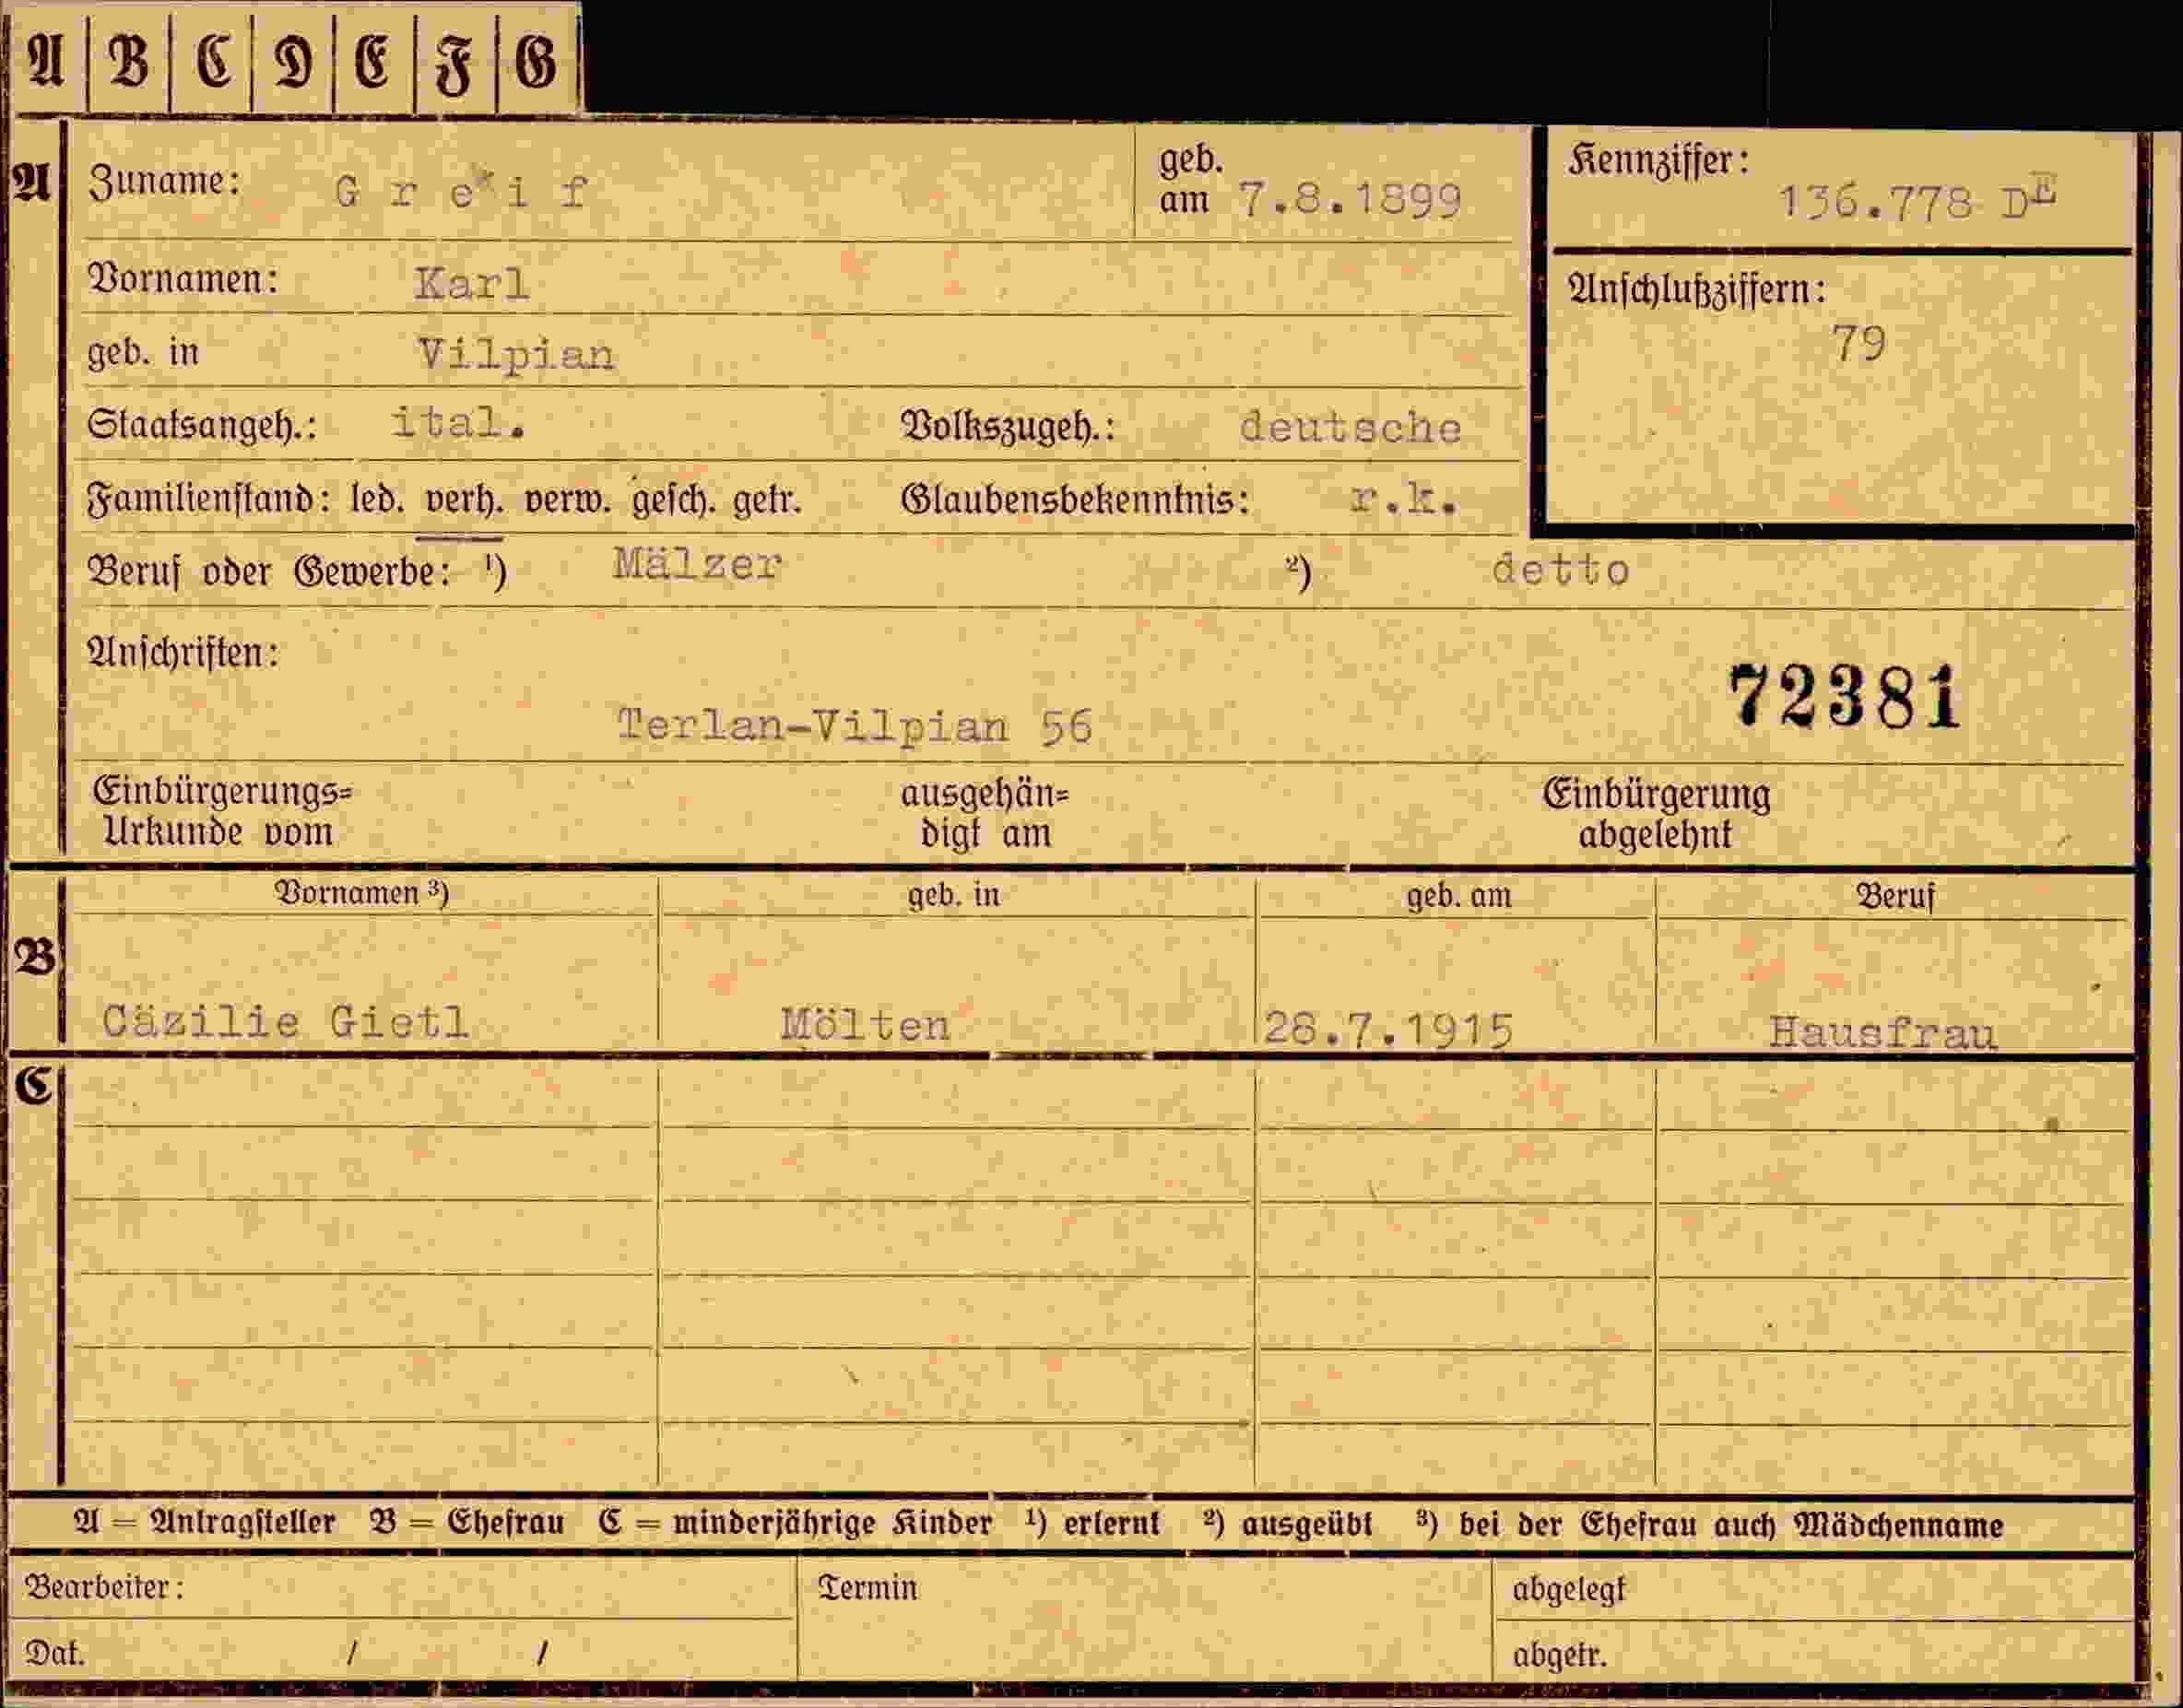 A B C D E F G
A Zuname: Greif geb. am 7.8.1899 Kennziffer: 136.778 DE
Vornamen: Karl Anschlußziffern: 79
geb. in Vilpian
Staatsangeh.: ital. Volkszugeh.: deutsche
Familienstand: led. verh. verw. gesch. getr. Glaubensbekenntnis: r.k.
Beruf oder Gewerbe: ¹) Mälzer ²) detto
Anschriften: 72381
Terlan-Vilpian 56
Einbürgerungs= ausgehän= Einbürgerung
Urkunde vom digt am abgelehnt
Vornamen ³) geb. in geb. am Beruf
B
Cäzilie Gietl Mölten 28.7.1915 Hausfrau
C
A = Antragsteller B = Ehefrau C = minderjährige Kinder ¹) erlernt ²) ausgeübt ³) bei der Ehefrau auch Mädchenname
Bearbeiter: Termin abgelegt
Dat. / / abgetr.